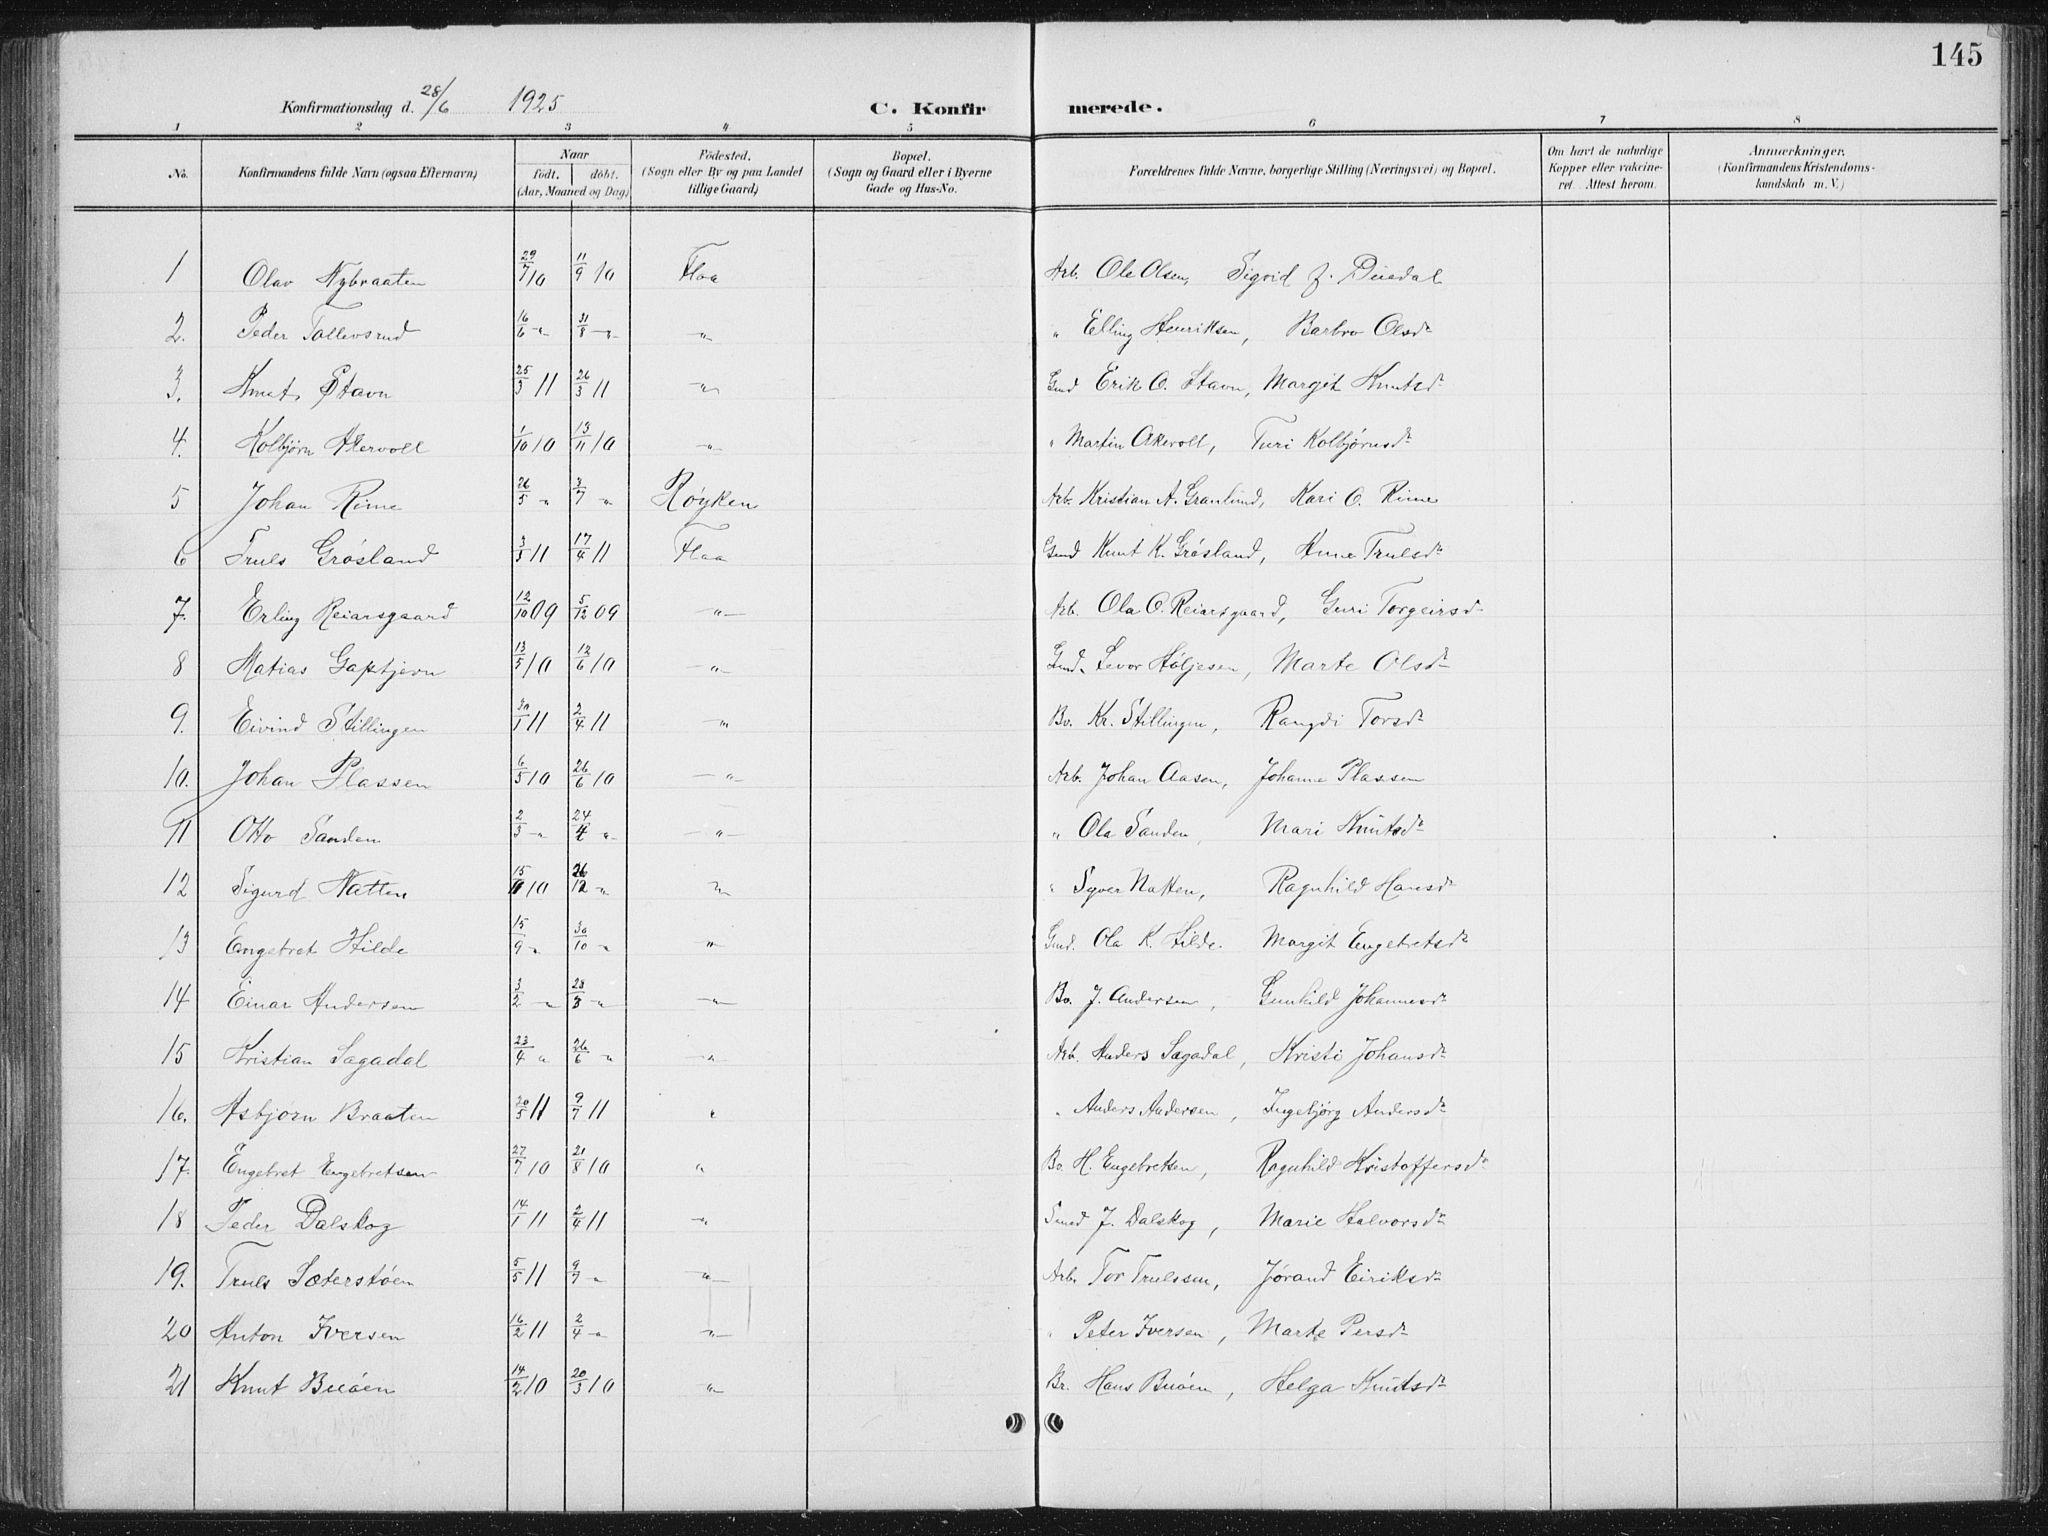 145
Konfirmationsdag d. 28/6 1925 C. Konfirmerede.
1 2 3 4 5 6 7 8
No. Konfirmandens fulde Navn (ogsaa Efternavn) Naar födt. döbt. (Aar, Maaned og Dag) Födested. (Sogn eller By og paa Landet tillige Gaard) Bopæl. (Sogn og Gaard eller i Byerne Gade og Hus-No. Forældrenes fulde Navne, borgerlige Stilling (Næringsvei) og Bopæl. Om havt de naturlige Kopper eller vakcineret. Attest herom. Anmærkninger. (Konfirmandens Kristendomskundskab m. V.)
1 Olav Nybraaten 29/7 10 11/9 10 Flaa Arb. Ole Olsen, Sigrid J.
2. Peder Tollevsrud 16/6 -"- 31/8 -"- -"- " Elling Henriksen, Barbro Olsdr
3. Knut Stavn 25/3 11 26/3 11 -"- Gmd Erik O. Stavn, Margit Knutsdr
4. Kolbjørn Akervoll 1/10 10 13/11 10 -"- " Martin Akervoll, Turi Kolbjørnsdr
5 Johan Rime 26/5 " 3/7 " Røyken Arb. Kristian A. Granlund, Kari O. Rime
6 Truls Grøsland 3/3 11 17/4 11 Flaa Gmd Knut K. Grøsland, Anne Trulsdr
7. Erling Reiarsgaard 12/10 09 5/12 09 -"- Arb. Ola O. Reiarsgaard, Guri Torgeirsdr
8 Matias Gaptjern 13/5 10 12/6 10 -"- Gmd. Levor Høljesen, Marte Olsdr
9. Eivind Stillingen 30/1 11 2/4 11 -"- Bo. Kr. Stillingen, Rangdi Torsdr
10. Johan Plassen 6/5 10 26/6 10 -"- Arb. Johan Aasen, Johanne Plassen
11 Otto Sanden 2/3 -"- 24/4 " -"- " Ola Sanden, Mari Knutsdr
12 Sigurd Natten 15/ 10 26/12 " -"- " Syver Natten, Ragnhild Hansdr
13 Engebret Hilde 15/9 " 30/10 " -"- Gmd. Ola K. Hilde. Margit Engebretsdr
14 Einar Andersen 3/2 -"- 28/3 -"- -"- Bo. J. Andersen, Gunhild Johannesdr
15 Kristian Sagadal 23/4 " 26/6 -"- -"- Arb. Anders Sagadal, Kristi Johansdr
16. Asbjørn Braaten 20/5 11 9/7 11 " " Anders Andersen, Ingebjørg Andersdr
17. Engebret Engebretsen 27/7 10 21/8 10 " Bo. H. Engebretsen, Ragnhild Kristoffersdr
18 Peder Dalskog 14/1 11 2/4 11 -"- Smed J. Dalskog, Marie Halvorsdr
19. Truls Sæterstøen 5/5 11 9/7 -"- -"- Arb. Tor Trulssen, Jørand Eiriksdr
20 Anton Iversen 16/2 11 2/4 -"- -"- " Peter Iversen, Marte Persdr
21 Knut Buøen 14/2 10 20/3 10 -"- Br. Hans Buøen, Helga Knutsdr